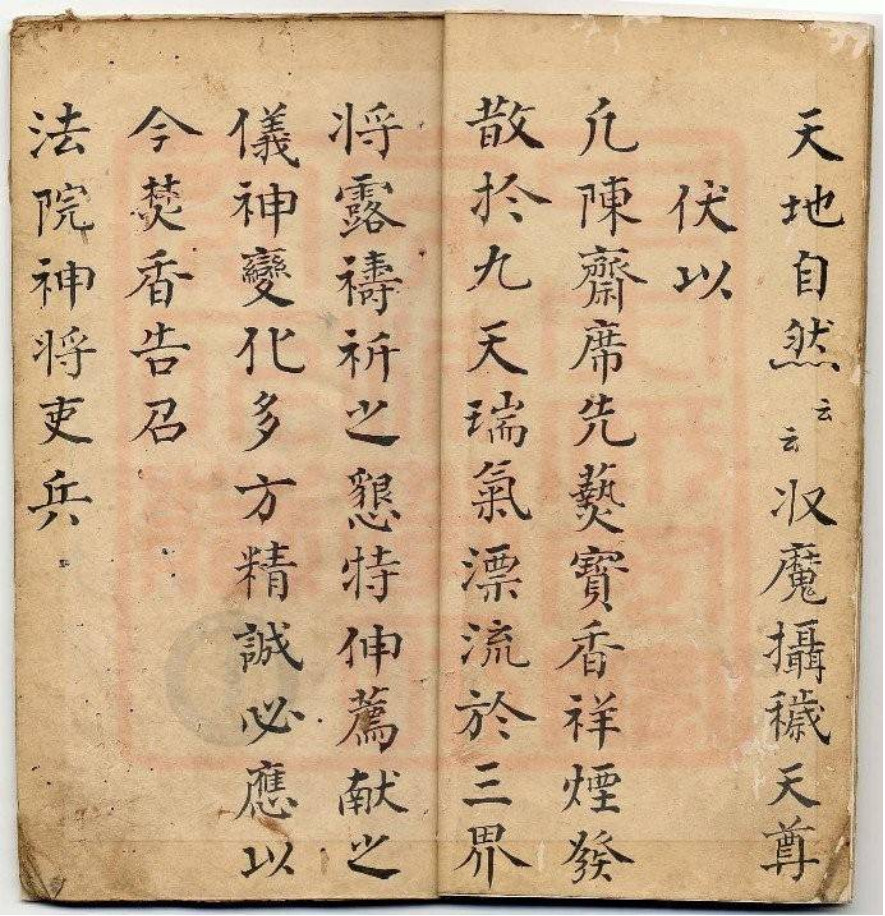 天地自然云云収魔攝穢天尊
伏以
凢陳齋席先爇寳香祥煙發
散扵九天瑞氣漂流於三界
将露禱祈之懇特伸薦献之
儀神變化多方精誠必應以
今焚香告召
法院神将吏兵